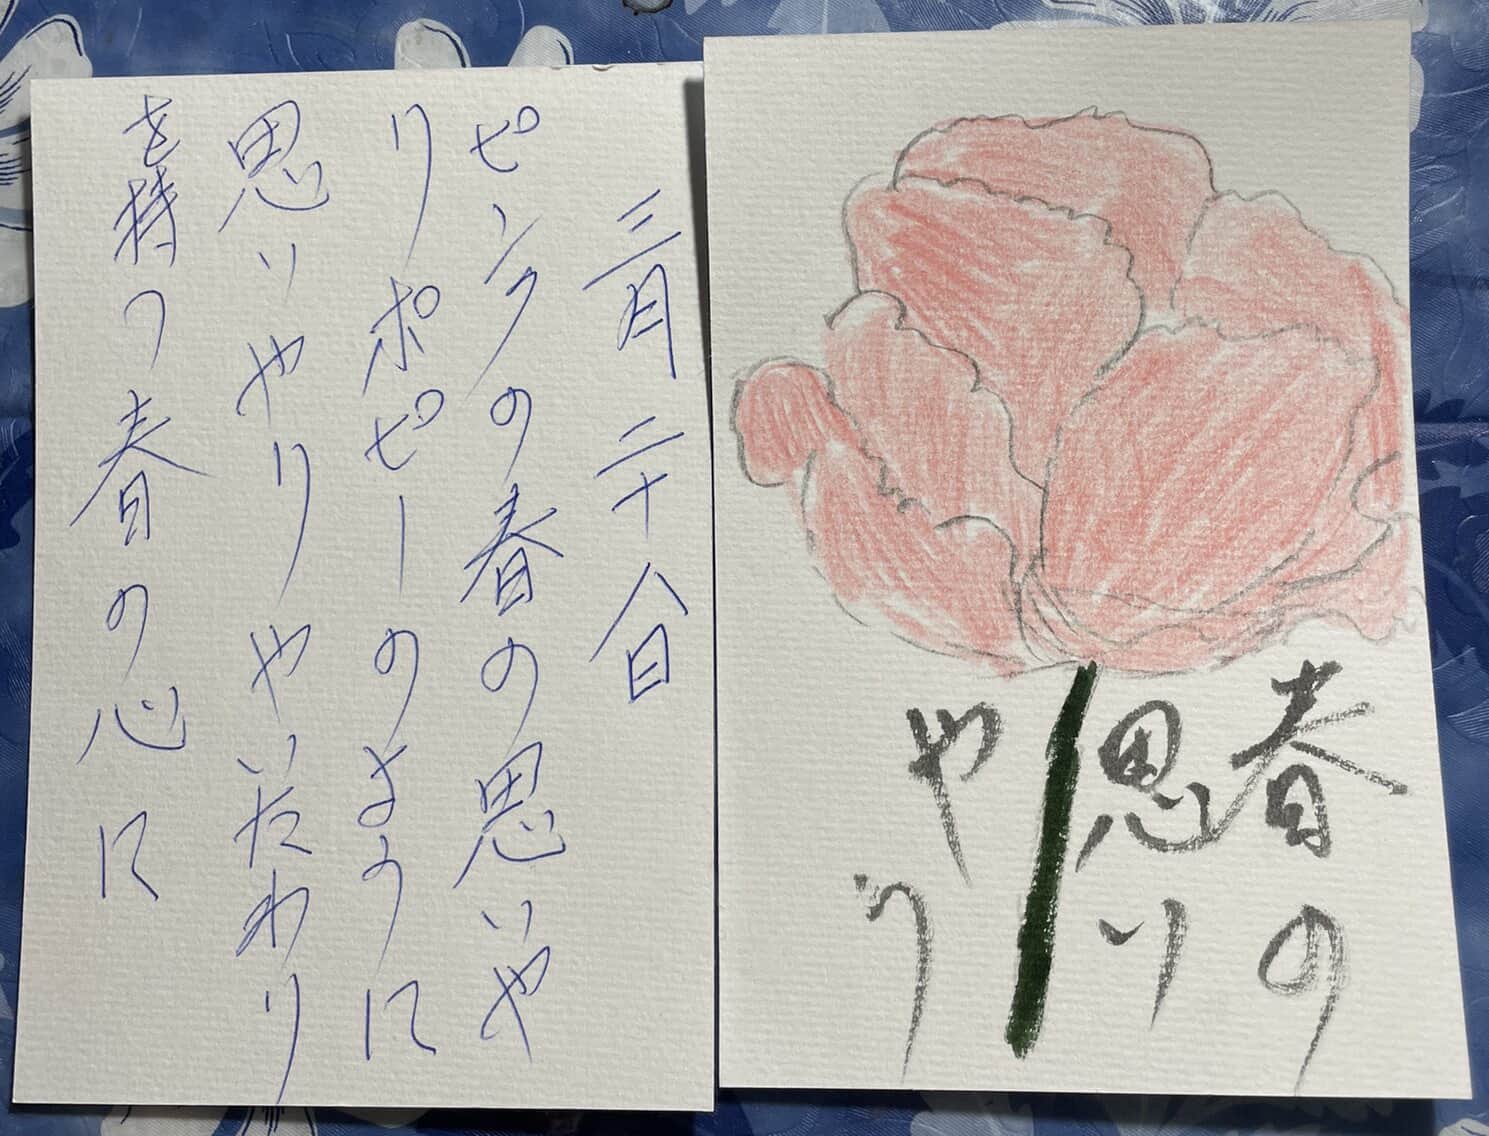 三月二十八日
ピンクの春の思いや
りポピーのように
思いやりやいたわり
を持つ春の心に
春の
思い
や
り